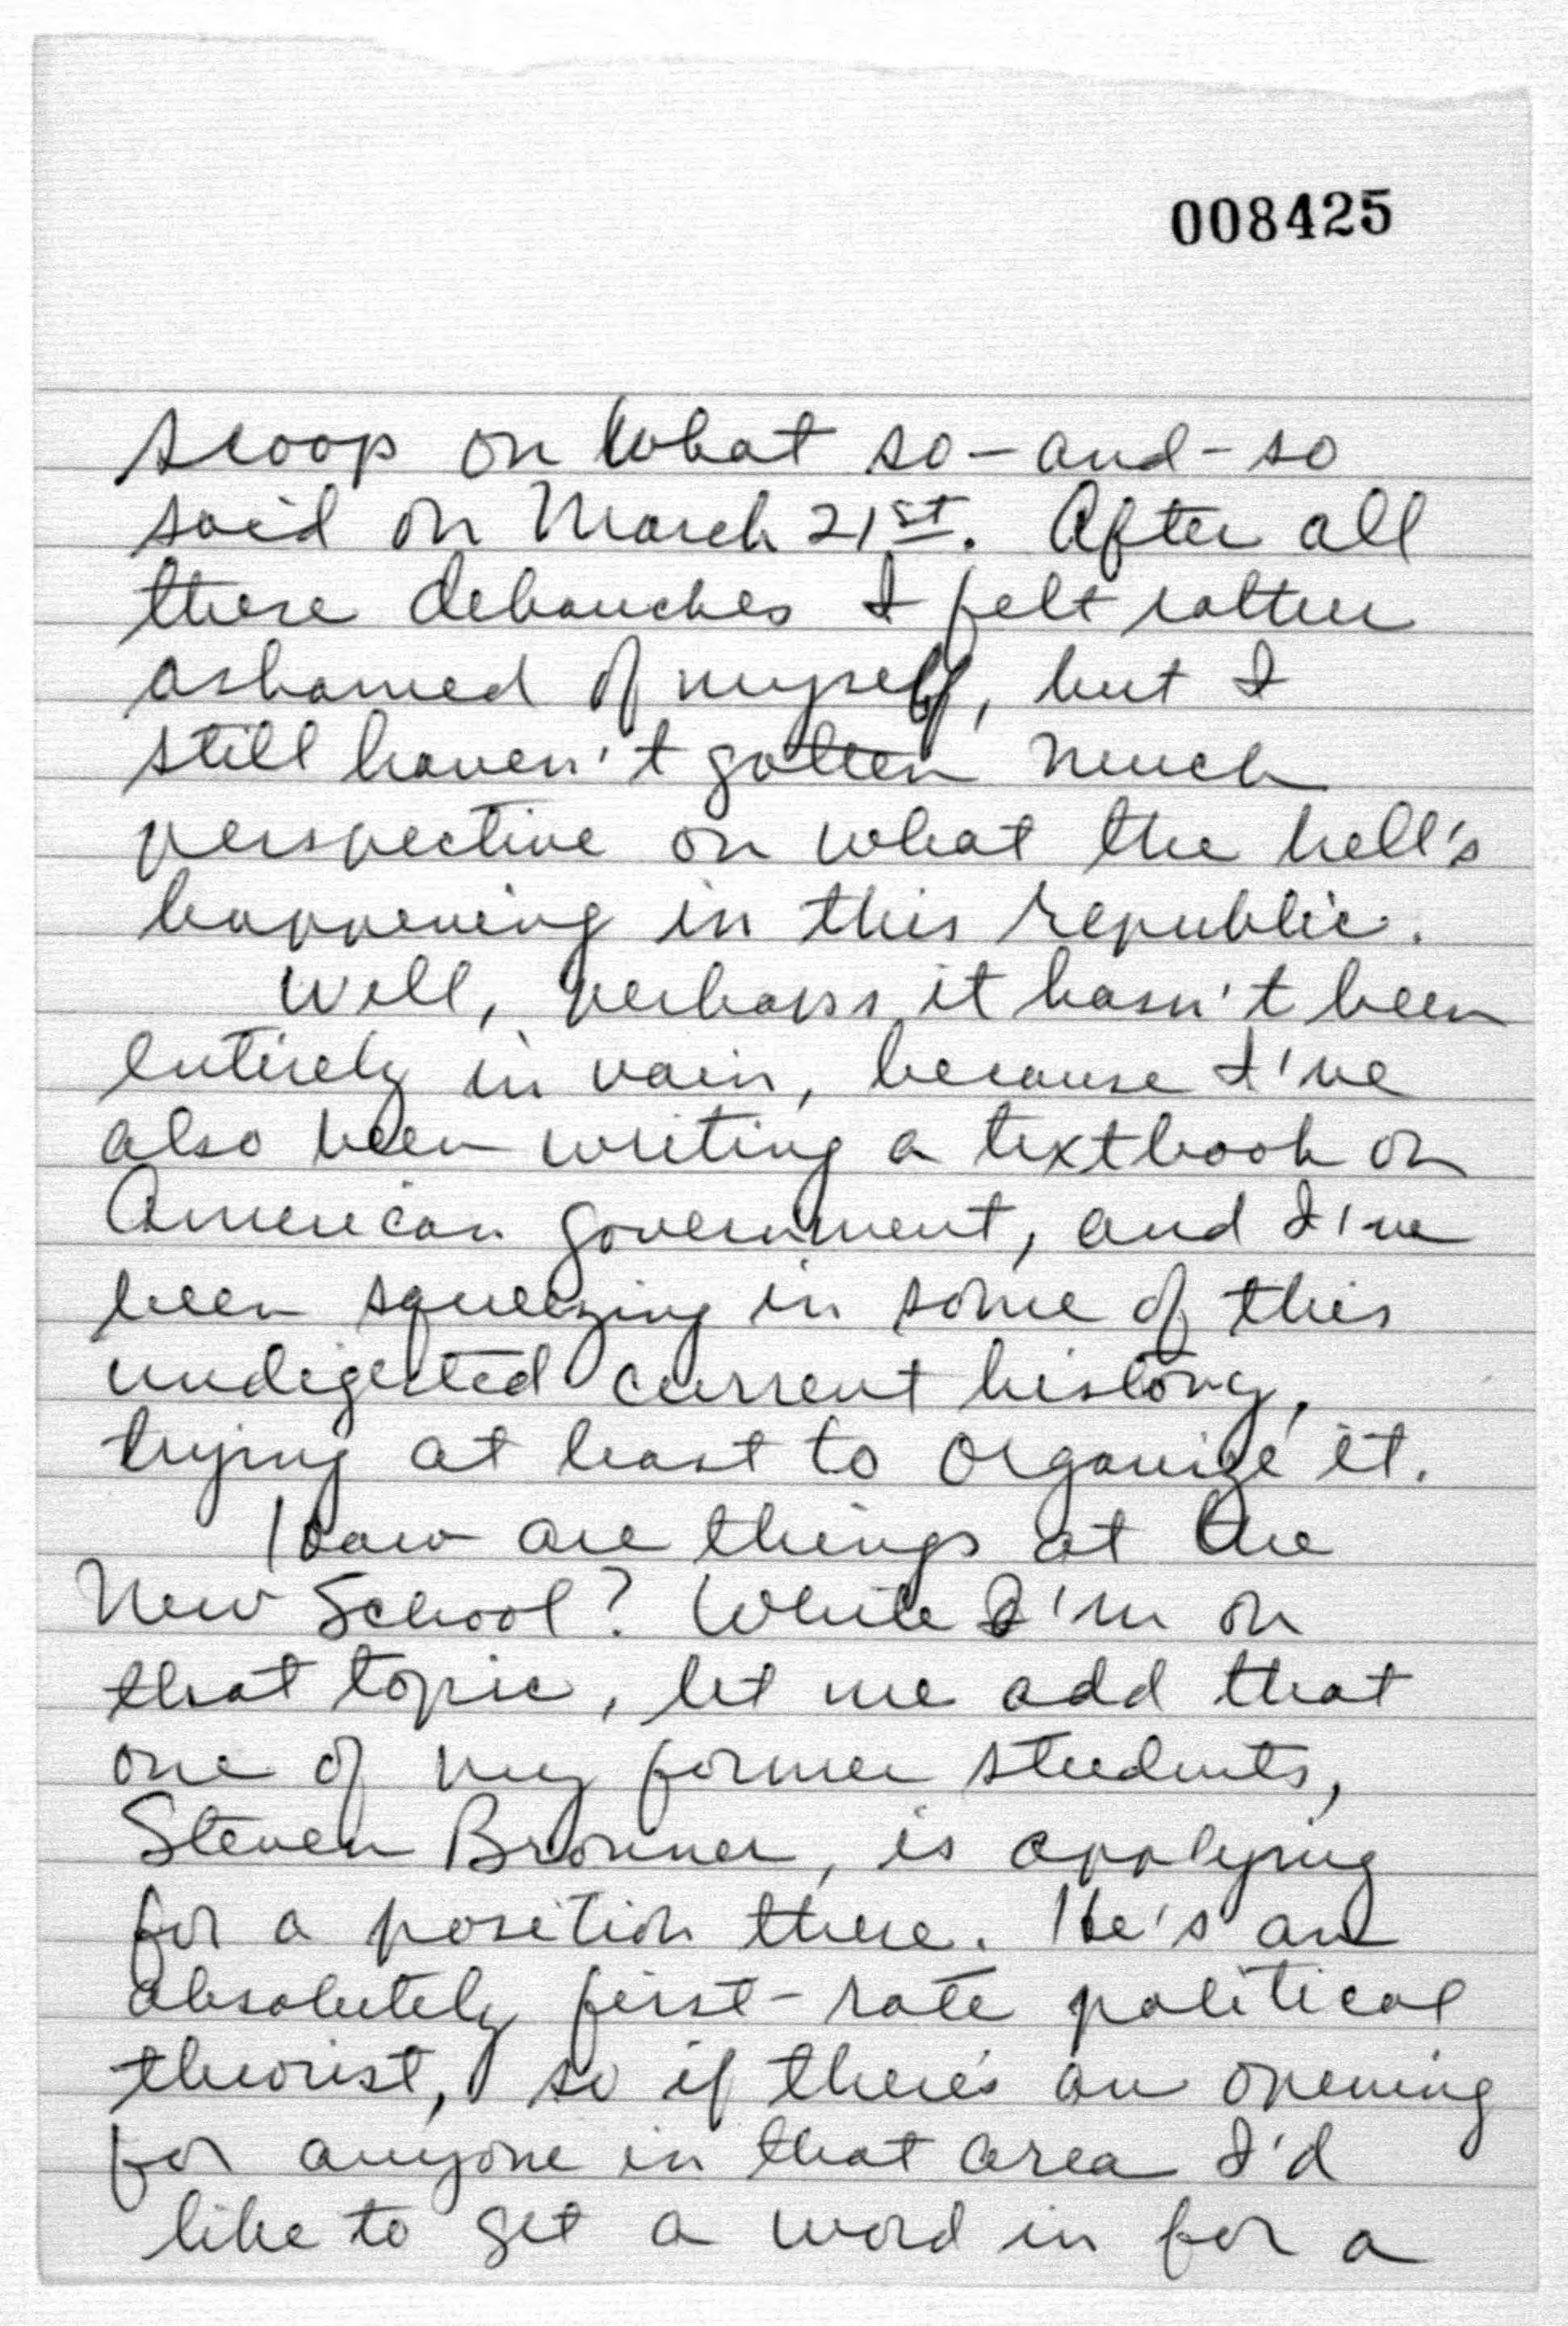 008425
scoop on what so-and-so
said on March 21st. After all
these debauches I felt rather
ashamed of myself, but I
still haven't gotten much
perspective on what the hell's
happening in this republic.
Well, perhaps it hasn't been
entirely in vain, because I've
also been writing a textbook on
American government, and I've
been squeezing in some of this
undigested current history,
trying at least to organize it.
How are things at the
New School? While I'm on
that topic, let me add that
one of my former students,
Steven Bronner, is applying
for a position there. He's an
absolutely first-rate political
theorist, so if there's an opening
for anyone in that area I'd
like to get a word in for a